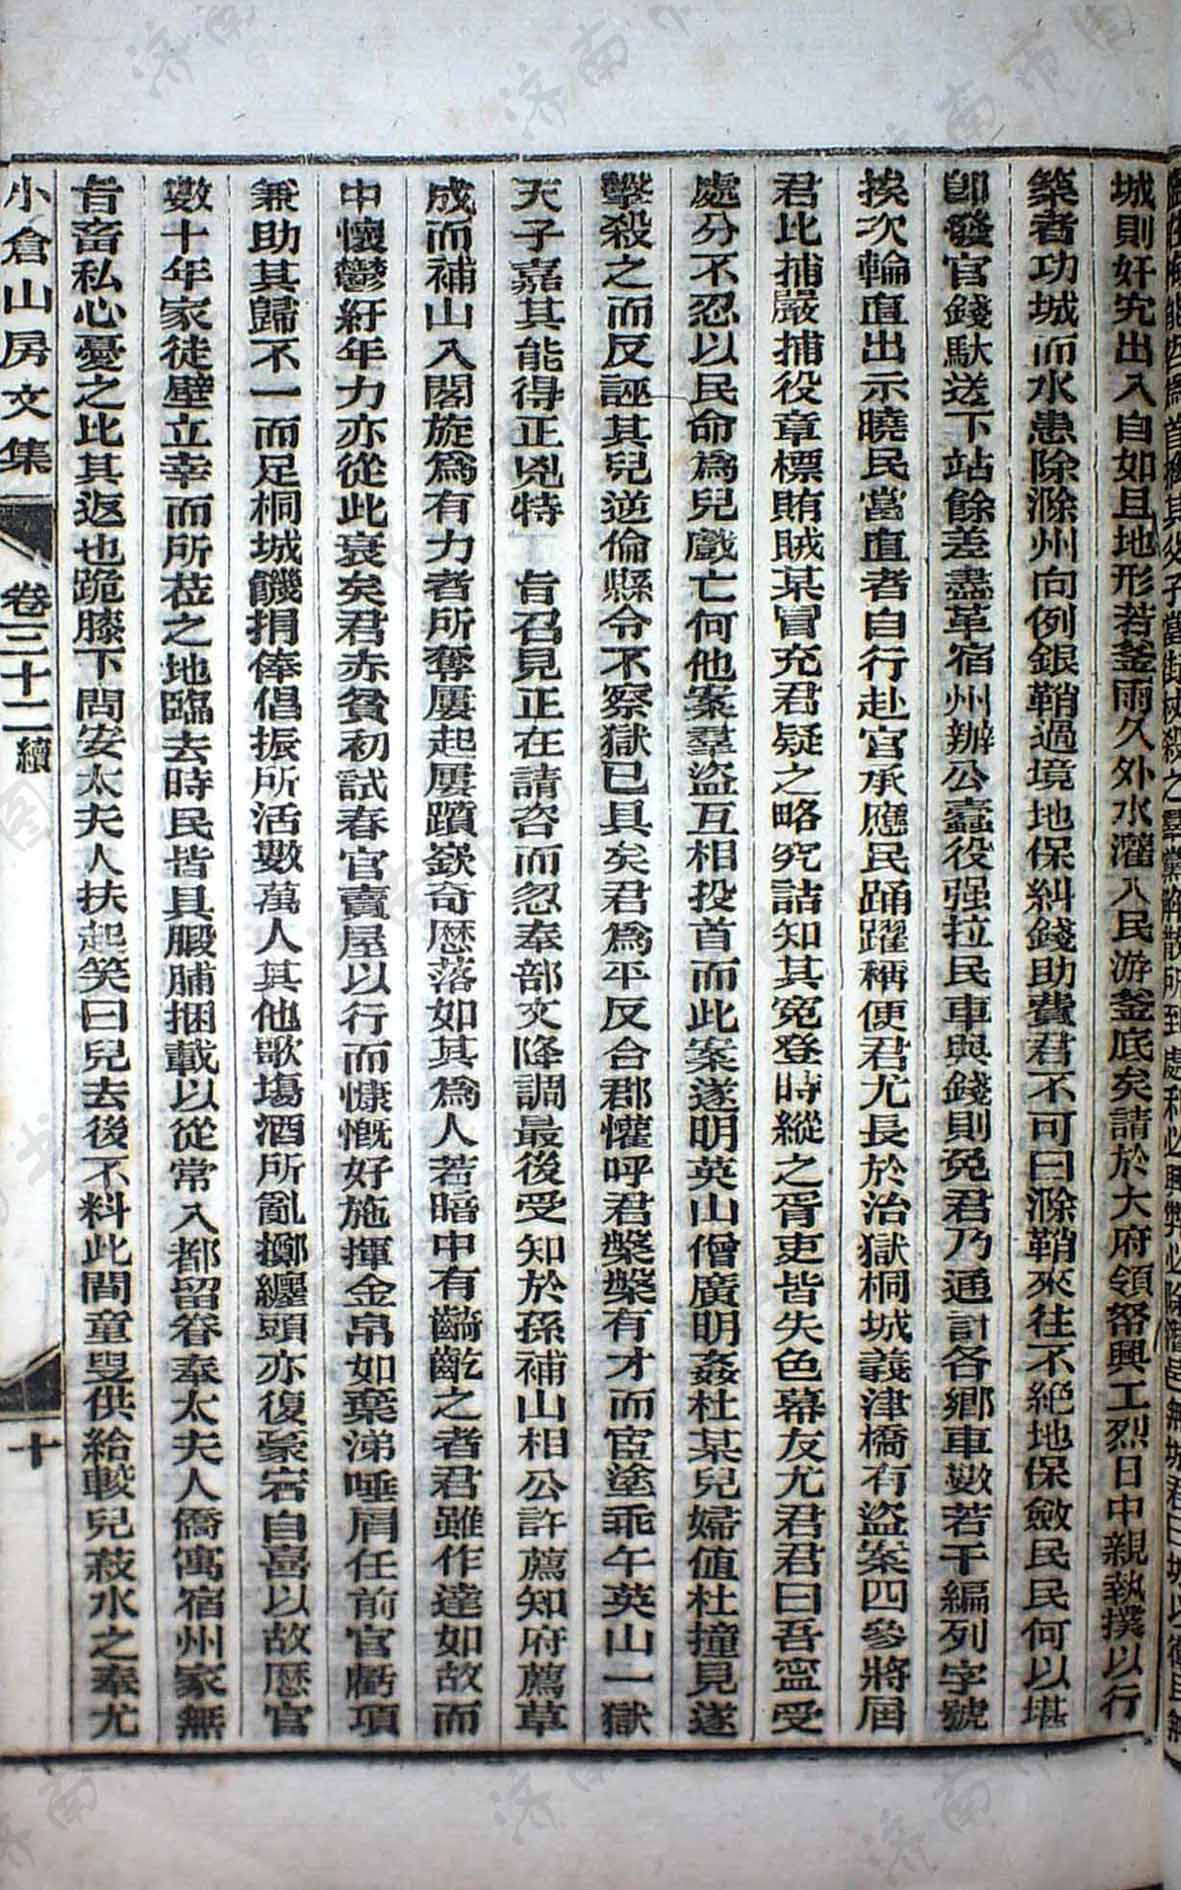 城則奸宄出入自如且地形若釜雨久外水灌入民游釜底矣請於大府領帑興工烈日中親執撲以行
築者功城而水患除滁州向例銀鞘過境地保糾錢助費君不可曰滁鞘來往不絕地保斂民民何以堪
卽發官錢馱送下站餘差盡革宿州辦公蠹役强拉民車與錢則免君乃通計各鄉車數若干編列字號
挨次輪直出示曉民當直者自行赴官承應民踊躍稱便君尤長於治獄桐城義津橋有盜案四參將屆
君比捕嚴捕役章標賄賊某冒充君疑之略究詰知其冤登時縱之胥吏皆失色幕友尤君君曰吾寍受
處分不忍以民命爲兒戲亡何他案羣盜互相投首而此案遂明英山僧廣明姦杜某兒婦値杜撞見遂
擊殺之而反誣其兒逆倫縣令不察獄已具矣君爲平反合郡懽呼君槃槃有才而宦塗乖午英山一獄
天子嘉其能得正兇特 旨召見正在請咨而忽奉部文降調最後受知於孫補山相公許薦知府薦草
成而補山入閣旋爲有力者所奪屢起屢躓嶔奇歷落如其爲人若暗中有齮齕之者君雖作達如故而
中懷鬱紆年力亦從此衰矣君赤貧初試春官賣屋以行而慷慨好施揮金帛如棄涕唾屑任前官虧項
兼助其歸不一而足桐城饑捐俸倡振所活數萬人其他歌場酒所亂擲纏頭亦復豪宕自喜以故歷官
數十年家徒壁立幸而所莅之地臨去時民皆具腶脯捆載以從常入都留眷奉太夫人僑寓宿州家無
旨畜私心憂之比其返也跪膝下問安太夫人扶起笑曰兒去後不料此間童叟供給較兒菽水之奉尤
小倉山房文集 卷三十二 續 十